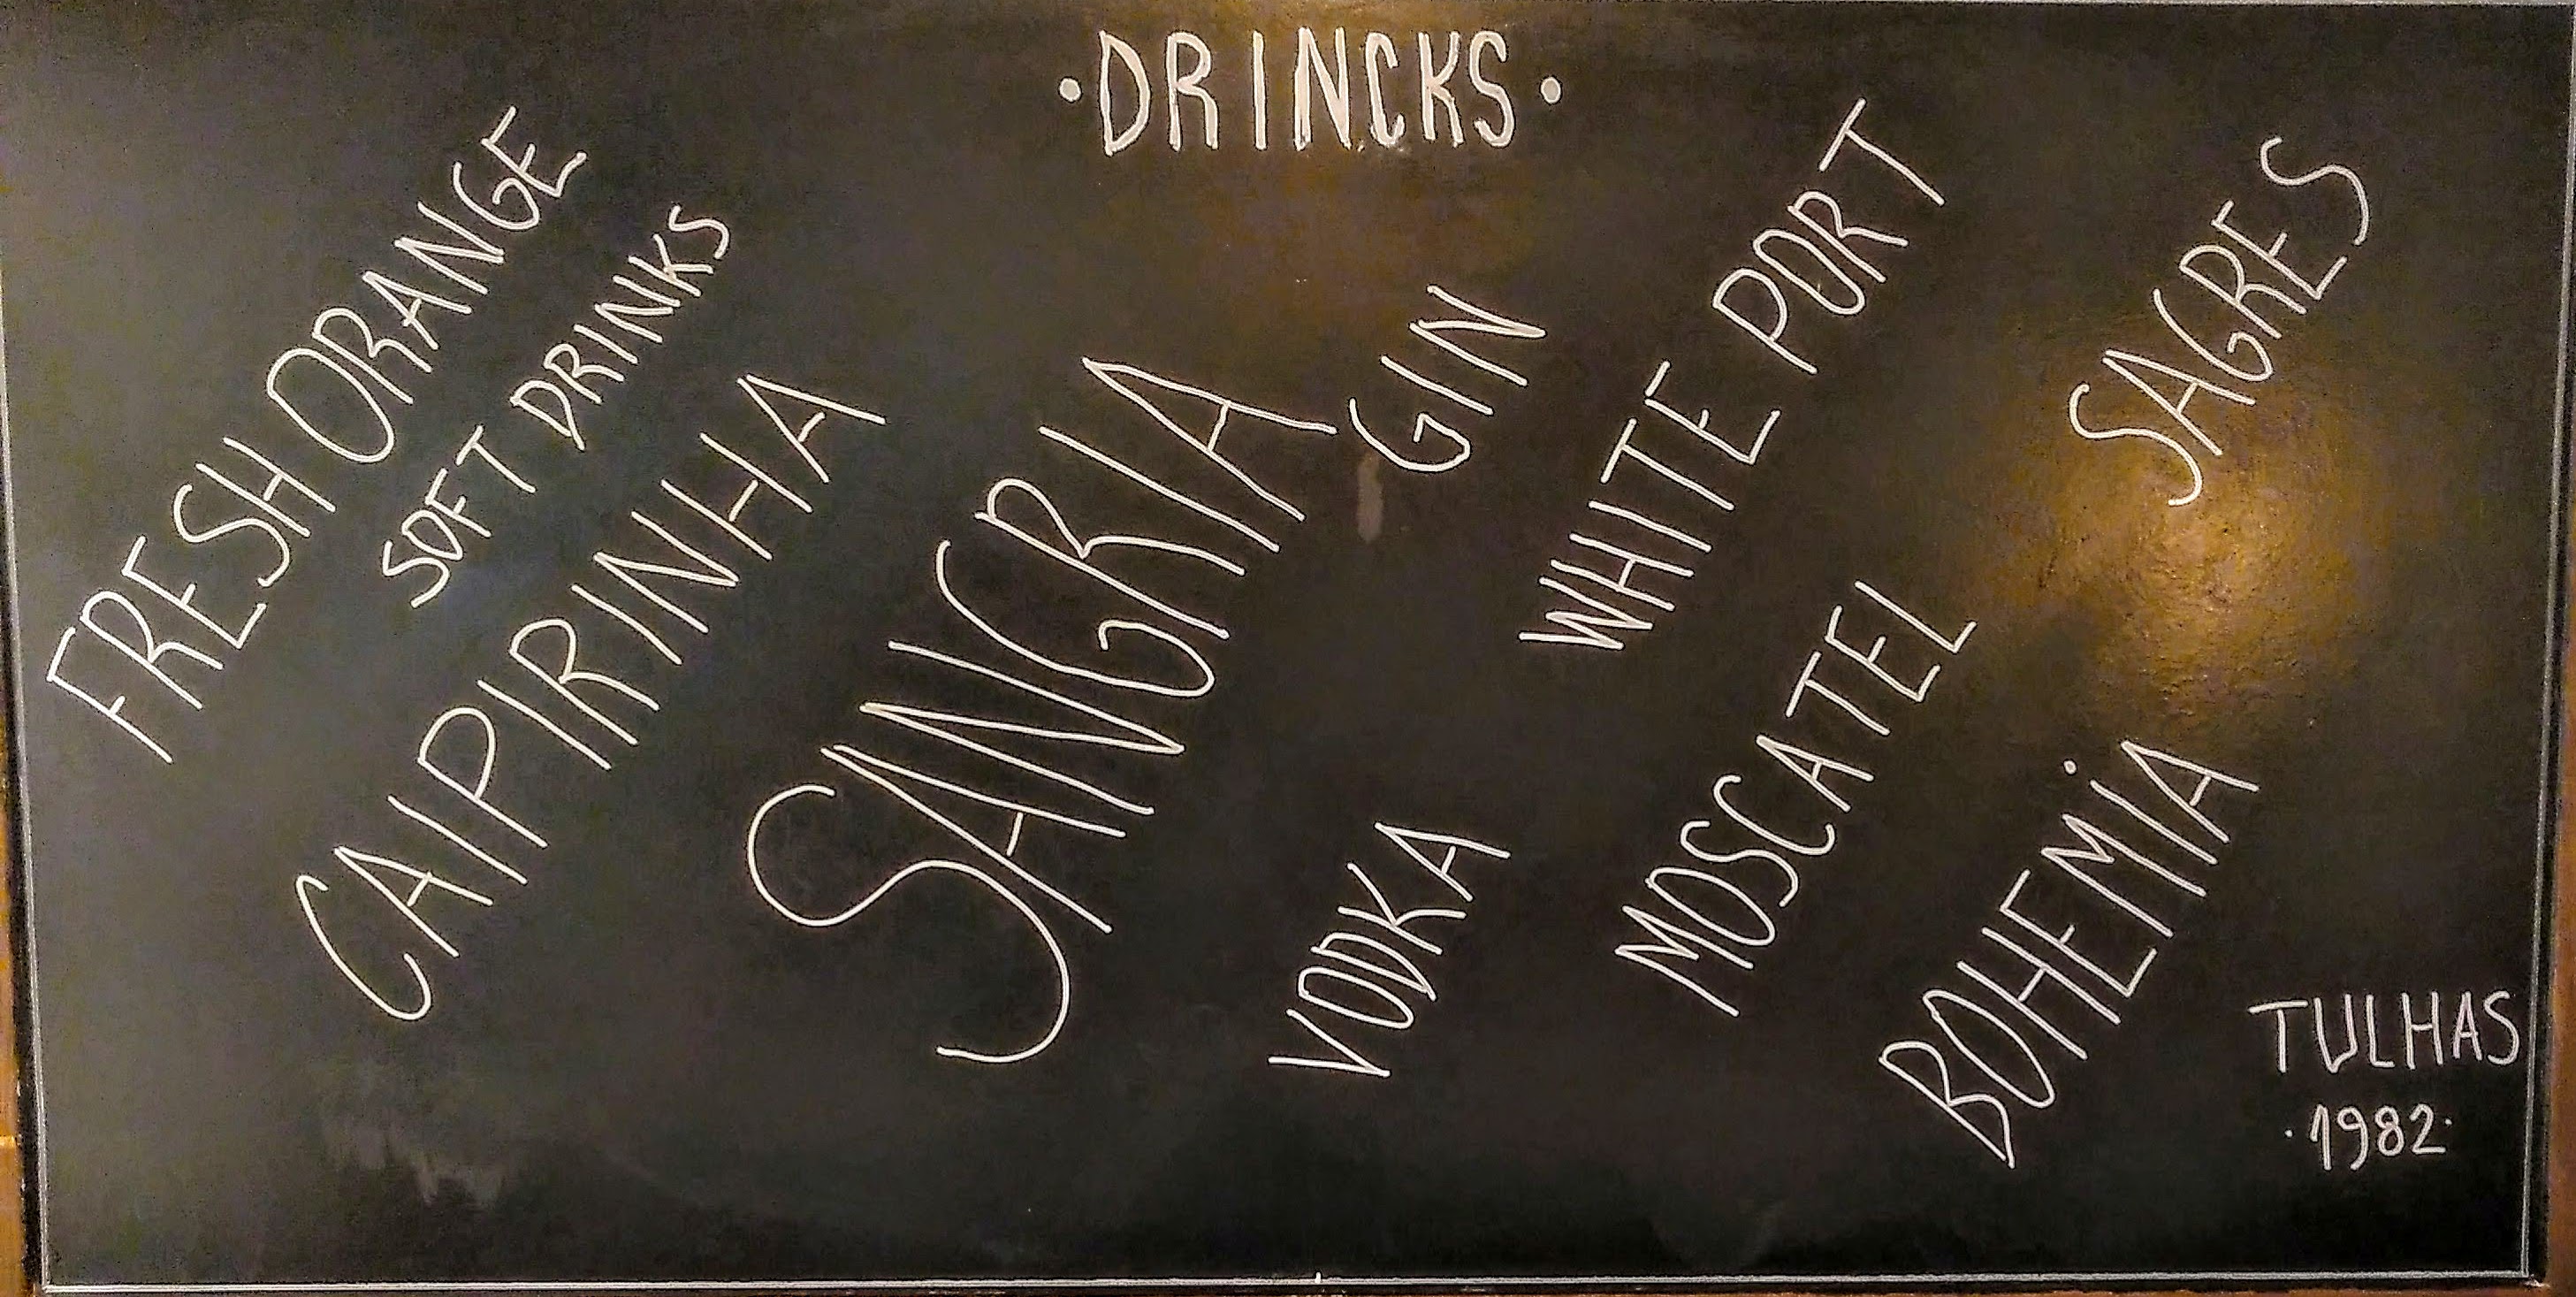 ·DRINCKS·
FRESH ORANGE
SOFT DRINKS
CAIPIRINHA
SANGRIA
GIN
VODKA
WHITE PORT
MOSCATEL
SAGRES
BOHEMiA
TULHAS
·1982·